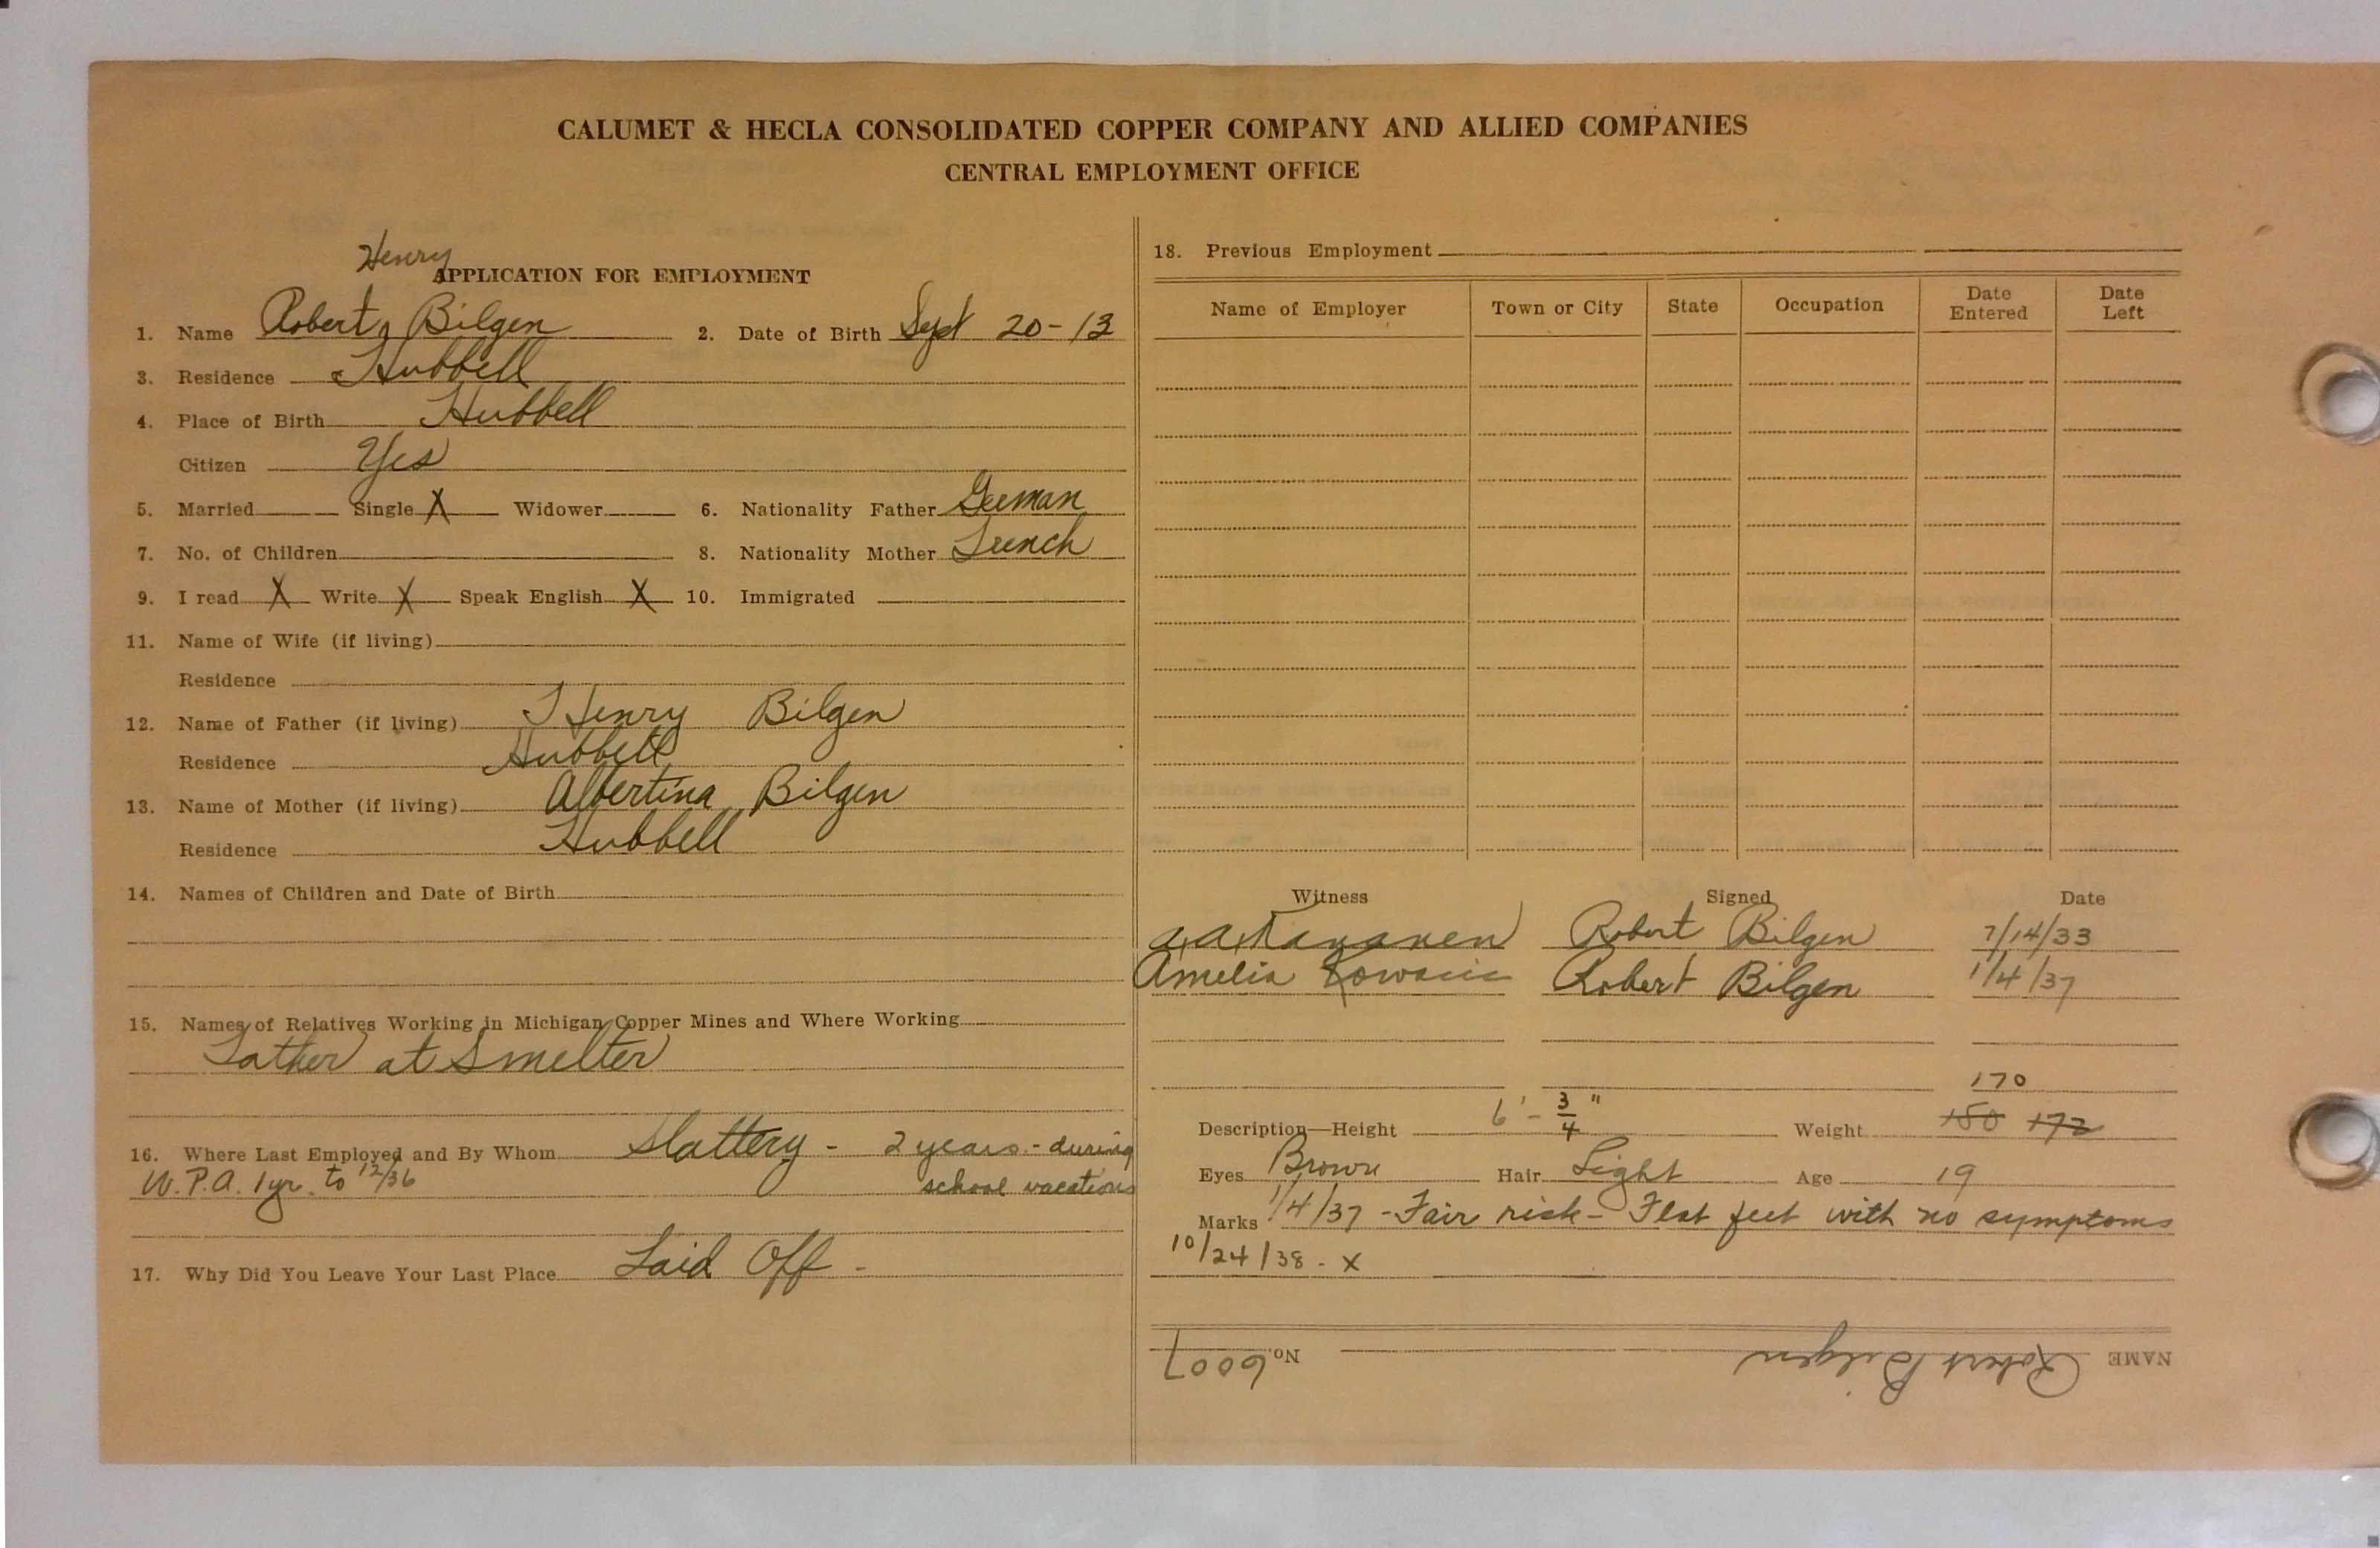 CALUMET & HECLA CONSOLIDATED COPPER COMPANY AND ALLIED COMPANIES
CENTRAL EMPLOYMENT OFFICE
Henry
APPLICATION FOR EMPLOYMENT
1. Name Robert Bilgen 2. Date of Birth Sept 20-13
3. Residence Hubbell
4. Place of Birth Hubbell
Citizen Yes
5. Married Single X Widower 6. Nationality Father German
7. No. of Children 8. Nationality Mother French
9. I read X Write X Speak English X 10. Immigrated
11. Name of Wife (if living)
Residence
12. Name of Father (if living) Henry Bilgen
Residence Hubbell
13. Name of Mother (if living) Albertina Bilgen
Residence Hubbell
14. Names of Children and Date of Birth
15. Names of Relatives Working in Michigan Copper Mines and Where Working
Father at Smelter
16. Where Last Employed and By Whom Slattery - 2 years - during
W.P.A. 1 yr. to 12/36 school vacations
17. Why Did You Leave Your Last Place Laid Off -
18. Previous Employment
Name of Employer Town or City State Occupation Date Entered Date Left
Witness Signed Date
Robert Bilgen 7/14/33
Amelia Robert Bilgen 1/4/37
170
Description—Height 6' - 3/4" Weight 150 172
Eyes Brown Hair Light Age 19
Marks 1/4/37 - Fair risk - Flat feet with no symptoms
10/24/38 - X
NAME Robert Bilgen No. 6007